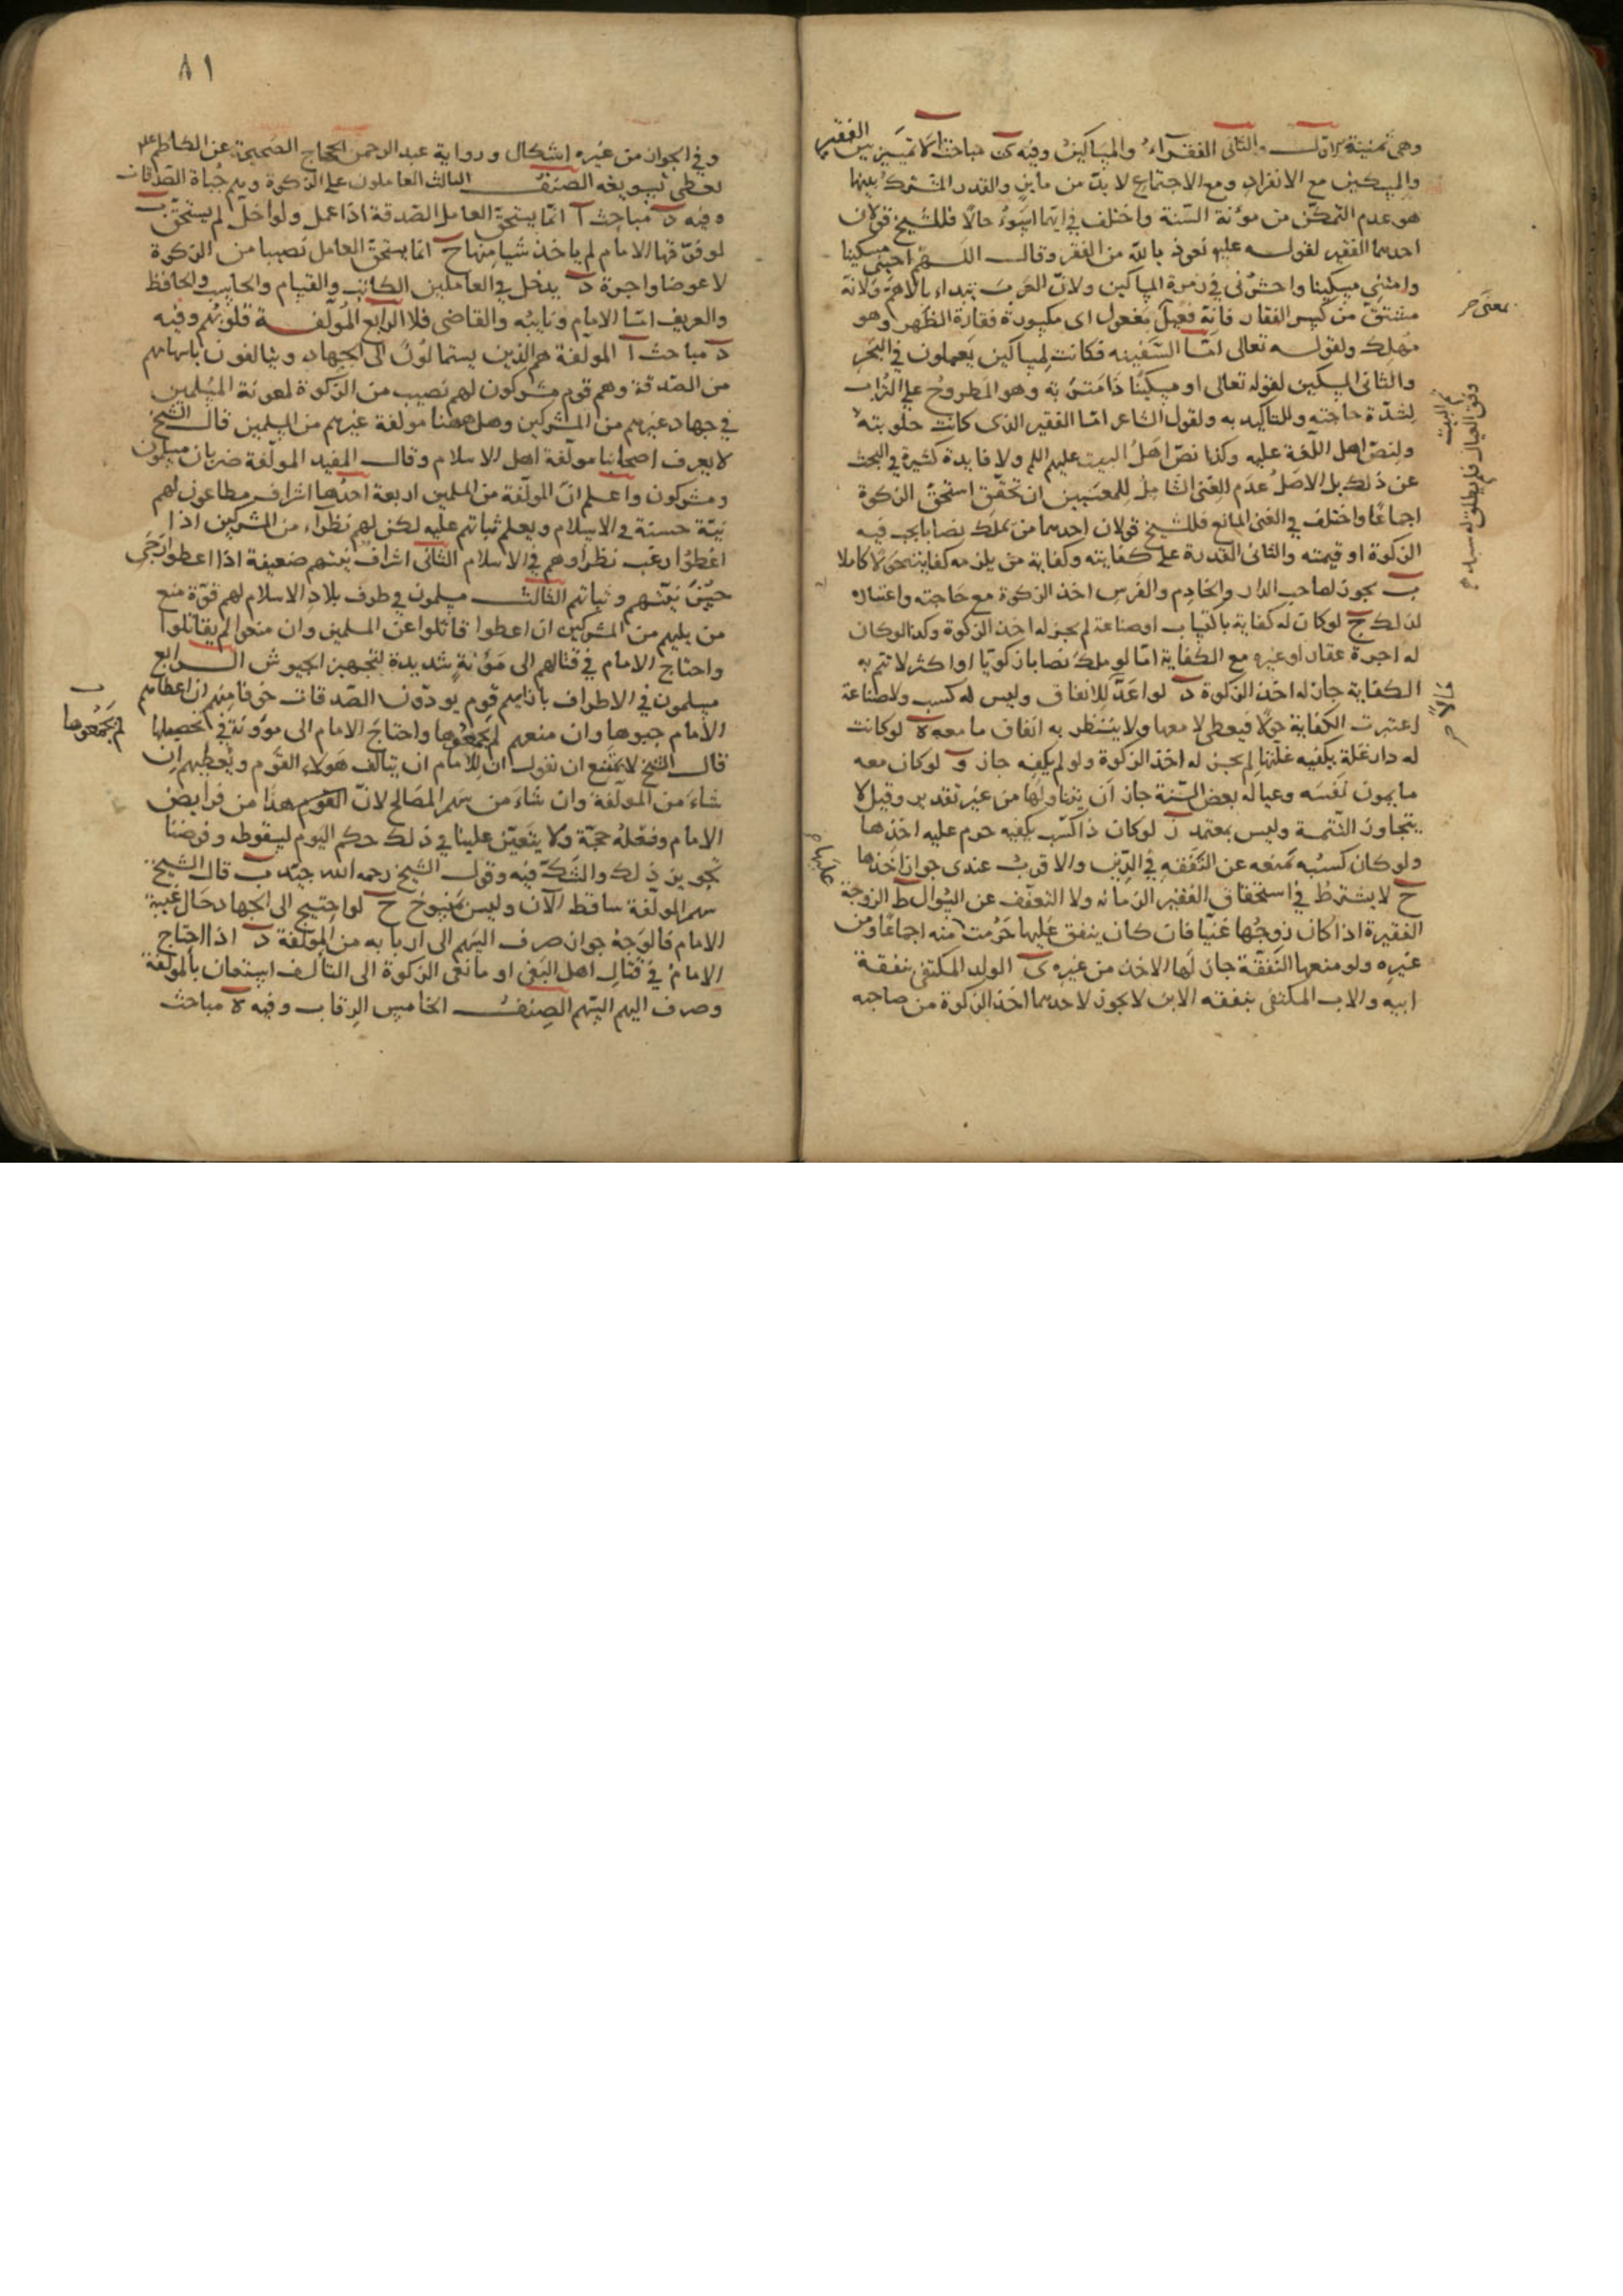 وهى ثمنية الاول والثانى الفقراء والمساكين وفيه ى مباحث ا لا تمييز بين الفقير
والمسكين مع الانفراد ومع الاجتماع لا بد من مايز والقدر المشترك بينهما
هو عدم التمكن من مؤنة السنة واختلف فى ايهما اسوء حالا فللشيخ قولان
احدهما الفقير لقوله عليه نعوذ بالله من الفقر وقال اللهم احينى مسكينا
وامتنى مسكينا واحشرنى فى زمرة المساكين ولان العرب تبداء بالاهم ولانه
مشتق من كسر الفقار فانه فعيل بمفعول اى مكسورة فقارة الظهر وهو
مهلك ولقوله تعالى اما السفينه فكانت لمساكين يعملون فى البحر
والثانى المسكين لقوله تعالى او مسكينا ذا متربه وهو المطروح على التراب
لشدة حاجته وللتاكيد به ولقول الشاعر اما الفقير الذى كانت حلوبته
ولنص اهل اللغة عليه وكذا نص اهل البيت عليهم السلم ولا فايدة كثيرة فى البحث
عن ذلك بل الاصل عدم الغنى الشامل للمعنيين ان تحقق استحق الزكوة
اجماعا واختلف فى الغنى المانع فللشيخ قولان احدهما من يملك نصابا يجب فيه
الزكوة او قيمته والثانى القدرة على كفايته وكفاية من يلزمه كفايته حولا كاملا
ب يجوز لصاحب الدار والخادم والفرس اخذ الزكوة مع حاجته واعتياده
لذلك ج لو كان له كفاية باكتساب او صناعة لم يجز له اخذ الزكوة وكذا لو كان
له اجرة عقار او غيره مع الكفاية اما لو ملك نصابا زكويا او اكثر لا تتم به
الكفاية جاز له اخذ الزكوة د لو اعد للانفاق وليس له كسب ولا صناعة
اعتبرت الكفاية حولا فيعطى لا معها ولا ينتظر به انفاق ما معه ه لو كانت
له دار غلة يكفيه غلتها لم يجز له اخذ الزكوة ولو لم يكفه جاز و لو كان معه
ما يمون نفسه وعياله بعض السنة جاز ان يتناولها من غير تقدير وقيل لا
يتجاوز التتمة وليس بمعتمد ز لو كان ذا كسب يكفيه حرم عليه اخذها
ولو كان كسبه يمنعه عن التفقه فى الدين والاقرب عندى جواز اخذها
ح لا يشترط فى استحقاق الفقير الزمانه ولا التعفف عن السوال ط الزوجة
الفقيرة اذا كان زوجها غنيا فان كان ينفق عليها حرمت منه اجماعا ومن
غيره ولو منعها النفقة جاز لها الاخذ من غيره ى الولد المكتفى بنفقة
ابيه والاب المكتفى بنفقه الابن لا يجوز لاحدهما اخذ الزكوة من صاحبه
بمعنى
٨١
وفى الجواز من غيره اشكال ورواية عبد الرحمن الحجاج الصحيحة عن الكاظم علم
تعطى تسويغه الصنف الثالث العاملون على الزكوة وهم جباة الصدقات
وفيه د مباحث ا انما يستحق العامل الصدقة اذا عمل ولو اخل لم يستحق ب
لو فرقها الامام لم ياخذ شيا منها ج انما يستحق العامل نصيبا من الزكوة
لا عوضا واجرة د يدخل فى العاملين الكاتب والقسام والحاسب والحافظ
والعريف اما الامام ونايبه والقاضى فلا الرابع المؤلفة قلوبهم وفيه
د مباحث ا المولفة هم الذين يستمالون الى الجهاد ويتالفون باسهامهم
من الصدقة وهم قوم مشركون لهم نصيب من الزكوة لمعونة المسلمين
فى جهاد غيرهم من المشركين وهل ههنا مولفة غيرهم من المسلمين قال الشيخ
لا يعرف اصحابنا مولفة اهل الاسلام وقال المفيد المولفة ضربان مسلمون
ومشركون واعلم ان المولفة من المسلمين اربعة احدها اشراف مطاعون لهم
نية حسنة فى الاسلام ويعلم ثباتهم عليه لكن لهم نظراء من المشركين اذا
اعطوا رغب نظراوهم فى الاسلام الثانى اشراف نيتهم ضعيفة اذا اعطوا رجى
حسن نيتهم وثباتهم الثالث مسلمون فى طرف بلاد الاسلام لهم قوة منع
من يليهم من المشركين ان اعطوا قاتلوا عن المسلمين وان منعوا لم يقاتلوا
واحتاج الامام فى قتالهم الى مؤنة شديدة لتجهيز الجيوش الرابع
مسلمون فى الاطراف بازايهم قوم يودون الصدقات خوفا منهم ان اعطاهم
الامام جبوها وان منعهم لم يجمعوها واحتاج الامام الى موونة فى تحصيلها
قال الشيخ لا يمتنع ان نقول ان للامام ان يتالف هولاء القوم ويعطيهم ان
شاء من المولفة وان شاء من سهم المصالح لان هذا من فرايض
الامام وفعله حجة ولا يتعين علينا فى ذلك حكم اليوم لسقوطه وفرضنا
تجويز ذلك والشك فيه وقول الشيخ رحمه الله جيد ب قال الشيخ
سهم المولفة ساقط الآن وليس بمنسوخ ج لو احتيج الى الجهاد حال غيبة
الامام فالوجه جواز صرف السهم الى اربابه من المولفة د اذا احتاج
الامام فى قتال اهل البغى او مانعى الزكوة الى التالف استعان بالمولفة
وصرف اليهم السهم الصنف الخامس الرقاب وفيه ه مباحث
لم يجمعوها